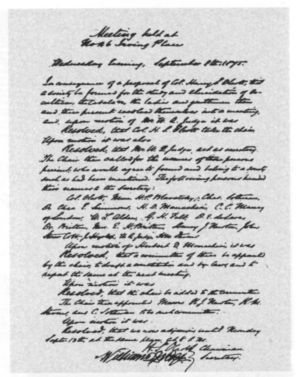 Meeting held at
No 46 Irving Place
Wednesday Evening, September 8th. 1875.
In consequence of a proposal of Col. Henry S. Olcott, that
a Society be formed for the study and elucidation of Oc-
cultism the ladies and gentlemen then
and there present resolved themselves into a meeting,
and, upon motion of Mr W. Q. Judge it was
Resolved, that Col H. S. Olcott take the chair
Upon motion it was also
Resolved, that Mr W. Q. Judge, act as secretary
The Chair then called for the names of the persons
present, who would agree to found and belong to a society
such as had been mentioned. The following persons handed
their names to the Secretary:
Col. Olcott, Mme H. P. Blavatsky, Chas. Sotheran
Dr Chas E. Simmons, H. D. Monachesi, C. C. Massey
of London, W. L. Alden, G. H. Felt, D. E. de Lara,
Dr Britten, Mrs E. H. Britten, Henry J. Newton, John
Storer Cobb, J. Hyslop, W. Q. Judge, H. M. Stevens
Upon motion of Herbert D. Monachesi it was
Resolved, that a committee of three be appointed
by the chair to draft a constitution and by-laws and to
report the same at the next meeting.
Upon motion it was
Resolved, that the chair be added to the Committee
The Chair then appointed Messrs H. J. Newton, H. M.
Stevens, and C. Sotheran to be such committee.
Upon motion it was
Resolved, that we now adjourn until Monday
Sept. 13th at the same place, at 8 P.M.
H. S. Olcott Chairman
William Q. Judge Secretary.